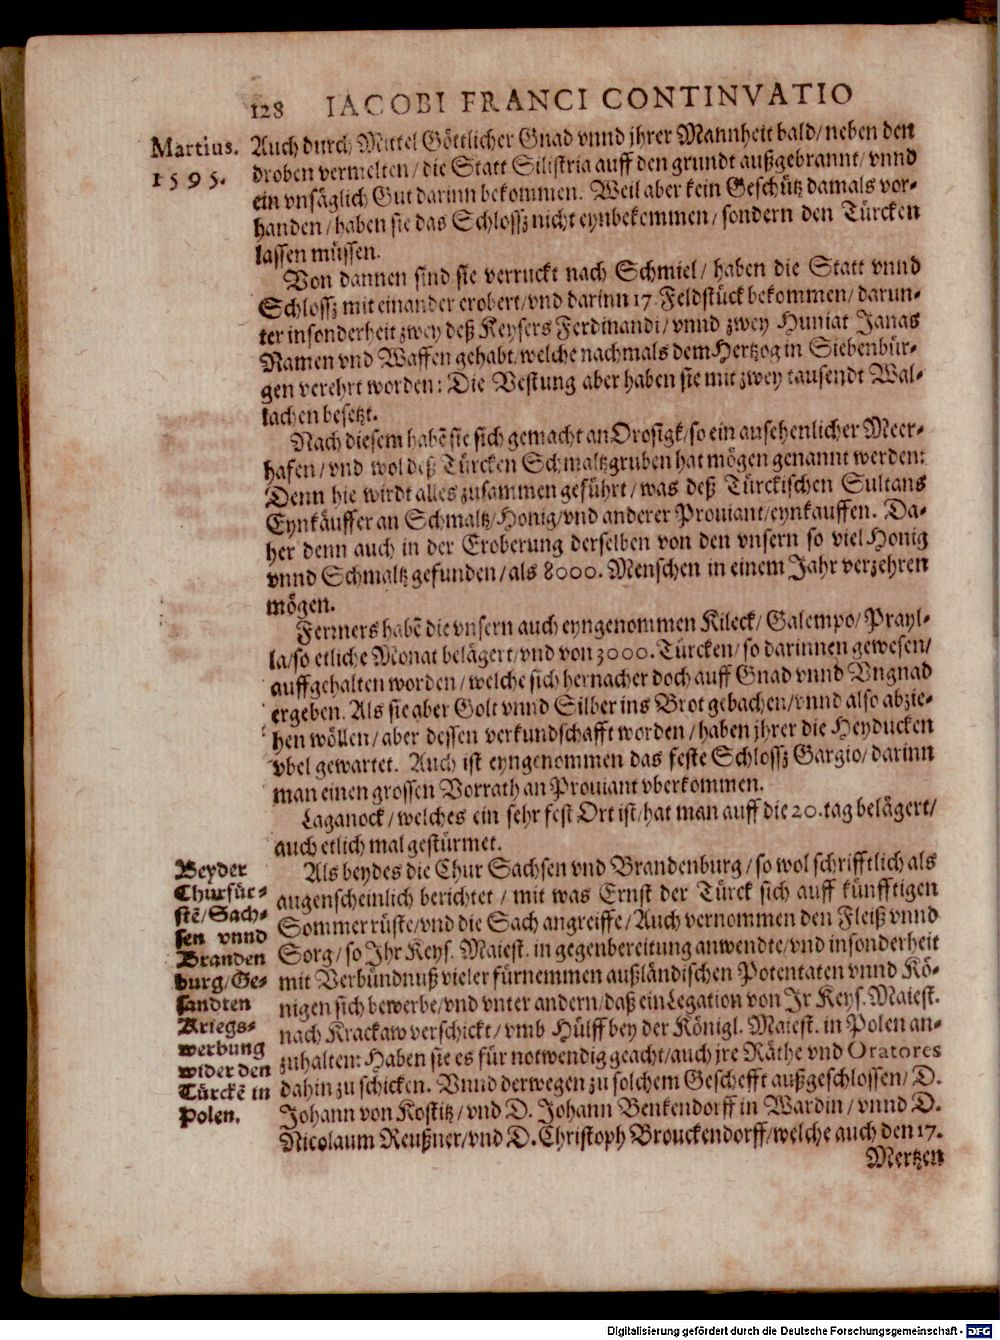 128 IACOBI FRANCI CONTINVATIO
Martius.
1595.
Auch durch Mittel Göttlicher Gnad vnnd jhrer Mannheit bald/ neben den
droben vermelten/ die Statt Silistria auff den grundt außgebrannt/ vnnd
ein vnsäglich Gut darinn bekommen. Weil aber kein Geschütz damals vor-
handen/ haben sie das Schlossz nicht eynbekommen/ sondern den Türcken
lassen müssen.
Von dannen sind sie verruckt nach Schmiel/ haben die Statt vnnd
Schlossz mit einander erobert/ vnd darinn 17. Feldstück bekommen/ darun-
ter insonderheit zwey deß Keysers Ferdinandi/ vnnd zwey Huniat Janas
Namen vnd Waffen gehabt/ welche nachmals dem Hertzog in Siebenbür-
gen verehrt worden: Die Vestung aber haben sie mit zwey tausendt Wal-
lachen besetzt.
Nach diesem habẽ sie sich gemacht an Orosigk/ so ein ansehenlicher Meer-
hafen/ vnd wol deß Türcken Schmaltzgruben hat mögen genannt werden:
Denn hie wirdt alles zusammen geführt/ was deß Türckischen Sultans
Eynkäuffer an Schmaltz/ Honig/ vnd anderer Prouiant/ eynkauffen. Da-
her denn auch in der Eroberung derselben von den vnsern so viel Honig
vnnd Schmaltz gefunden/ als 8000. Menschen in einem Jahr verzehren
mögen.
Ferrners habẽ die vnsern auch eyngenommen Kileck/ Galempo/ Prayl-
la/ so etliche Monat belägert/ vnd von 3000. Türcken/ so darinnen gewesen/
auffgehalten worden/ welche sich hernacher doch auff Gnad vnnd Vngnad
ergeben. Als sie aber Golt vnnd Silber ins Brot gebachen/ vnnd also abzie-
hen wöllen/ aber dessen verkundschafft worden/ haben jhrer die Heyducken
vbel gewartet. Auch ist eyngenommen das feste Schlossz Gargio/ darinn
man einen grossen Vorrath an Prouiant vberkommen.
Laganock/ welches ein sehr fest Ort ist/ hat man auff die 20. tag belägert/
auch etlich mal gestürmet.
Beyder
Churfür-
stẽ/ Sach-
sen vnnd
Branden
burg/ Ge-
sandten
Kriegs-
werbung
wider den
Türckẽ in
Polen.
Als beydes die Chur Sachsen vnd Brandenburg/ so wol schrifftlich als
augenscheinlich berichtet/ mit was Ernst der Türck sich auff künfftigen
Sommer rüste/ vnd die Sach angreiffe/ Auch vernommen den Fleiß vnnd
Sorg/ so Ihr Keys. Maiest. in gegenbereitung anwendte/ vnd insonderheit
mit Verbündnuß vieler fürnemmen außländischen Potentaten vnnd Kö-
nigen sich bewerbe/ vnd vnter andern/ daß ein Legation von Ir Keys. Maiest.
nach Krackaw verschickt/ vmb Hülff bey der Königl. Maiest. in Polen an-
zuhalten: Haben sie es für notwendig geacht/ auch jre Räthe vnd Oratores
dahin zu schicken. Vnnd derwegen zu solchem Geschefft außgeschlossen/ D.
Johann von Kostitz/ vnd D. Johann Benkendorff in Wardin/ vnnd D.
Nicolaum Reußner/ vnd D. Christoph Brouckendorff/ welche auch den 17.
Mertzen
Digitalisierung gefördert durch die Deutsche Forschungsgemeinschaft - DFG